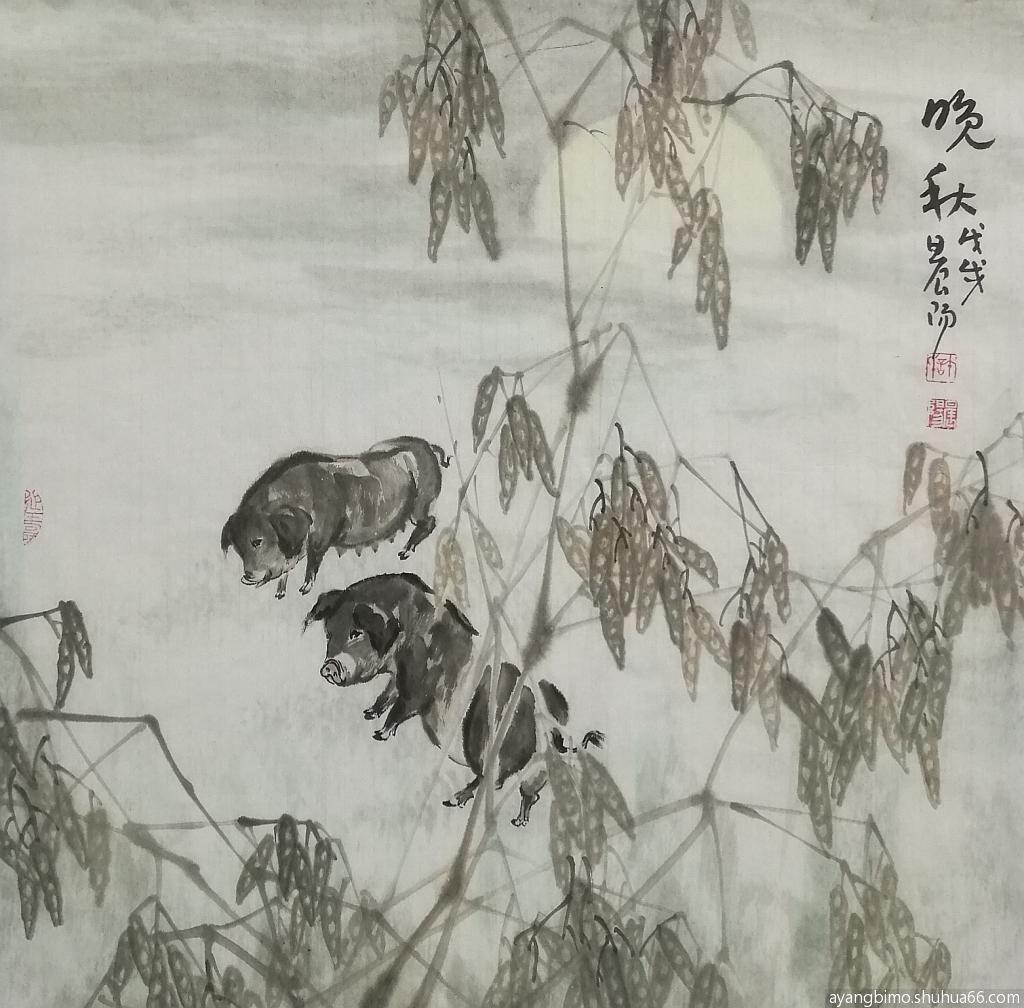 晚秋
戊戌
晨阳
ayangbimo.shuhua66.com